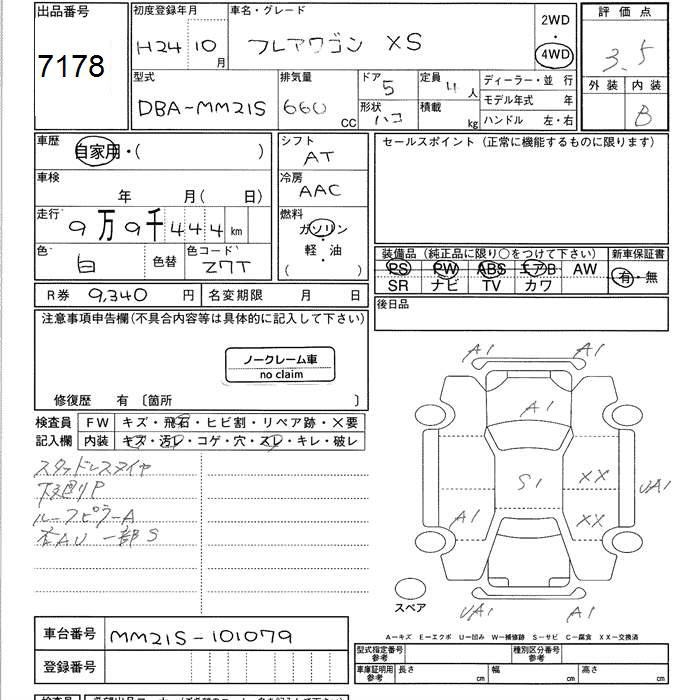 出品番号
7178
初度登録年月
H24 10月
車名・グレード
フレアワゴン XS
2WD
・
4WD
評価点
3.5
外装 内装
B
型式
DBA-MM21S
排気量
660 CC
ドア
5
形状
ハコ
定員
4人
積載
kg
ディーラー・並 行
モデル年式 年
ハンドル 左・右
車歴
自家用・( )
車検
年 月( 日)
走行
9万9千444km
色
白
色替
色コード
Z7T
シフト
AT
冷房
AAC
燃料
ガソリン
軽・油
( )
セールスポイント(正常に機能するものに限ります)
装備品(純正品に限り○をつけて下さい)
PS PW ABS エアB AW
SR ナビ TV カワ
新車保証書
有・無
R券 9,340 円
名変期限 月 日
後日品
注意事項申告欄(不具合内容等は具体的に記入して下さい)
ノークレーム車
no claim
修復歴 有 〔箇所 〕
検査員
記入欄
FW キズ・飛石・ヒビ割・リペア跡・×要
内装 キズ・汚レ・コゲ・穴・スレ・キレ・破レ
スタッドレスタイヤ
下廻りP
ルーフピラーA
AU 一部S
A1 A1
A1
S1
XX
UA1
A1
XX
UA1 A1
スペア
A－キズ E－エクボ U－凹み W－補修跡 S－サビ C－腐食 XX－交換済
車台番号 MM21S-101079
登録番号
型式指定番号
参考
種別区分番号
参考
車庫証明用
参考
長さ cm
幅 cm
高さ cm